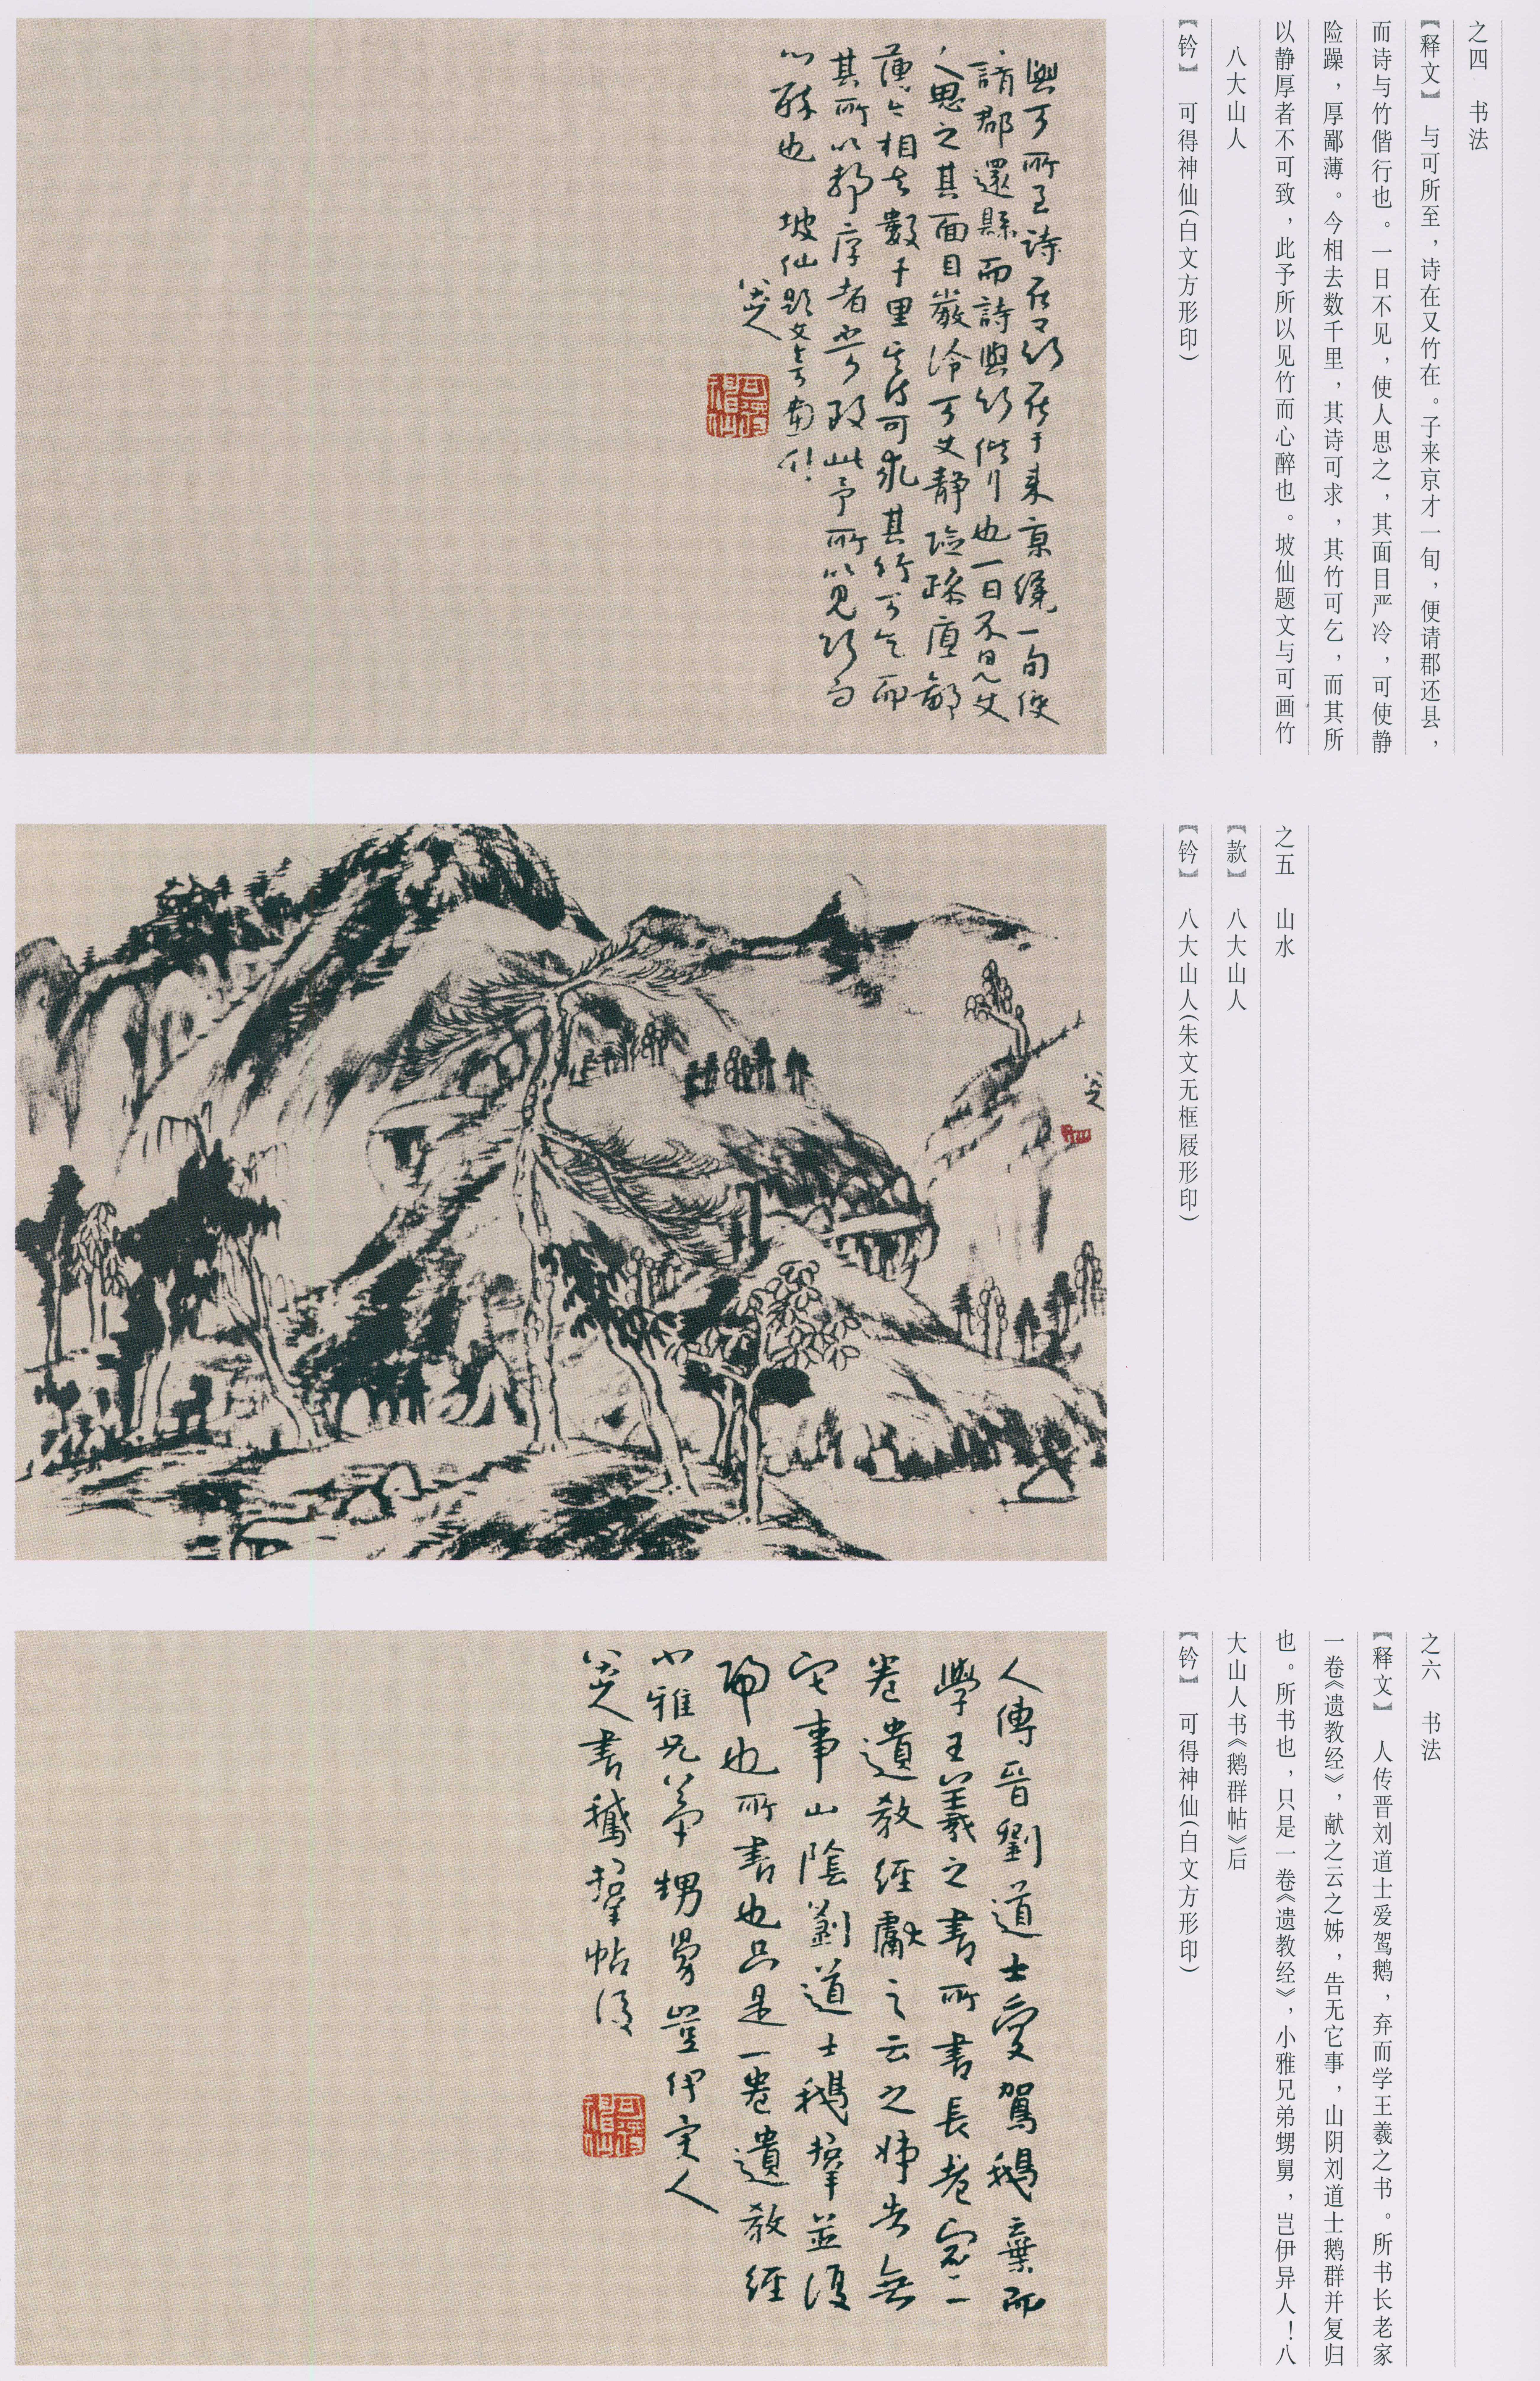 之四　书法
【释文】　与可所至，诗在又竹在。子来京才一旬，便请郡还县，
而诗与竹偕行也。一日不见，使人思之，其面目严冷，可使静
险躁，厚鄙薄。今相去数千里，其诗可求，其竹可乞，而其所
以静厚者不可致，此予所以见竹而心醉也。坡仙题文与可画竹
八大山人
【钤】　可得神仙(白文方形印)
與可所至詩在又竹在子来京纔一旬便
請郡還縣而詩與竹偕行也一日不見使
人思之其面目嚴冷可使静險躁厚鄙
薄今相去數千里其诗可求其竹可乞而
其所以静厚者不可致此予所以見竹而
心醉也　坡仙題文與可畫竹
八大山人
可得神仙
之五　山水
【款】　八大山人
【钤】　八大山人(朱文无框屐形印)
八大山人
之六　书法
【释文】　人传晋刘道士爱驾鹅，弃而学王羲之书。所书长老家
一卷《遗教经》，献之云之姊，告无它事，山阴刘道士鹅群并复归
也。所书也，只是一卷《遗教经》，小雅兄弟甥舅，岂伊异人！八
大山人书《鹅群帖》后
【钤】　可得神仙(白文方形印)
人傳晉劉道士愛駕鵝棄而
學王羲之書所書長老家一
卷遺教經獻之云之姊告無
它事山陰劉道士鵝群並復
歸也所書也只是一卷遺教經
小雅兄弟甥舅豈伊異人
八大山人書鵝群帖後
可得神仙